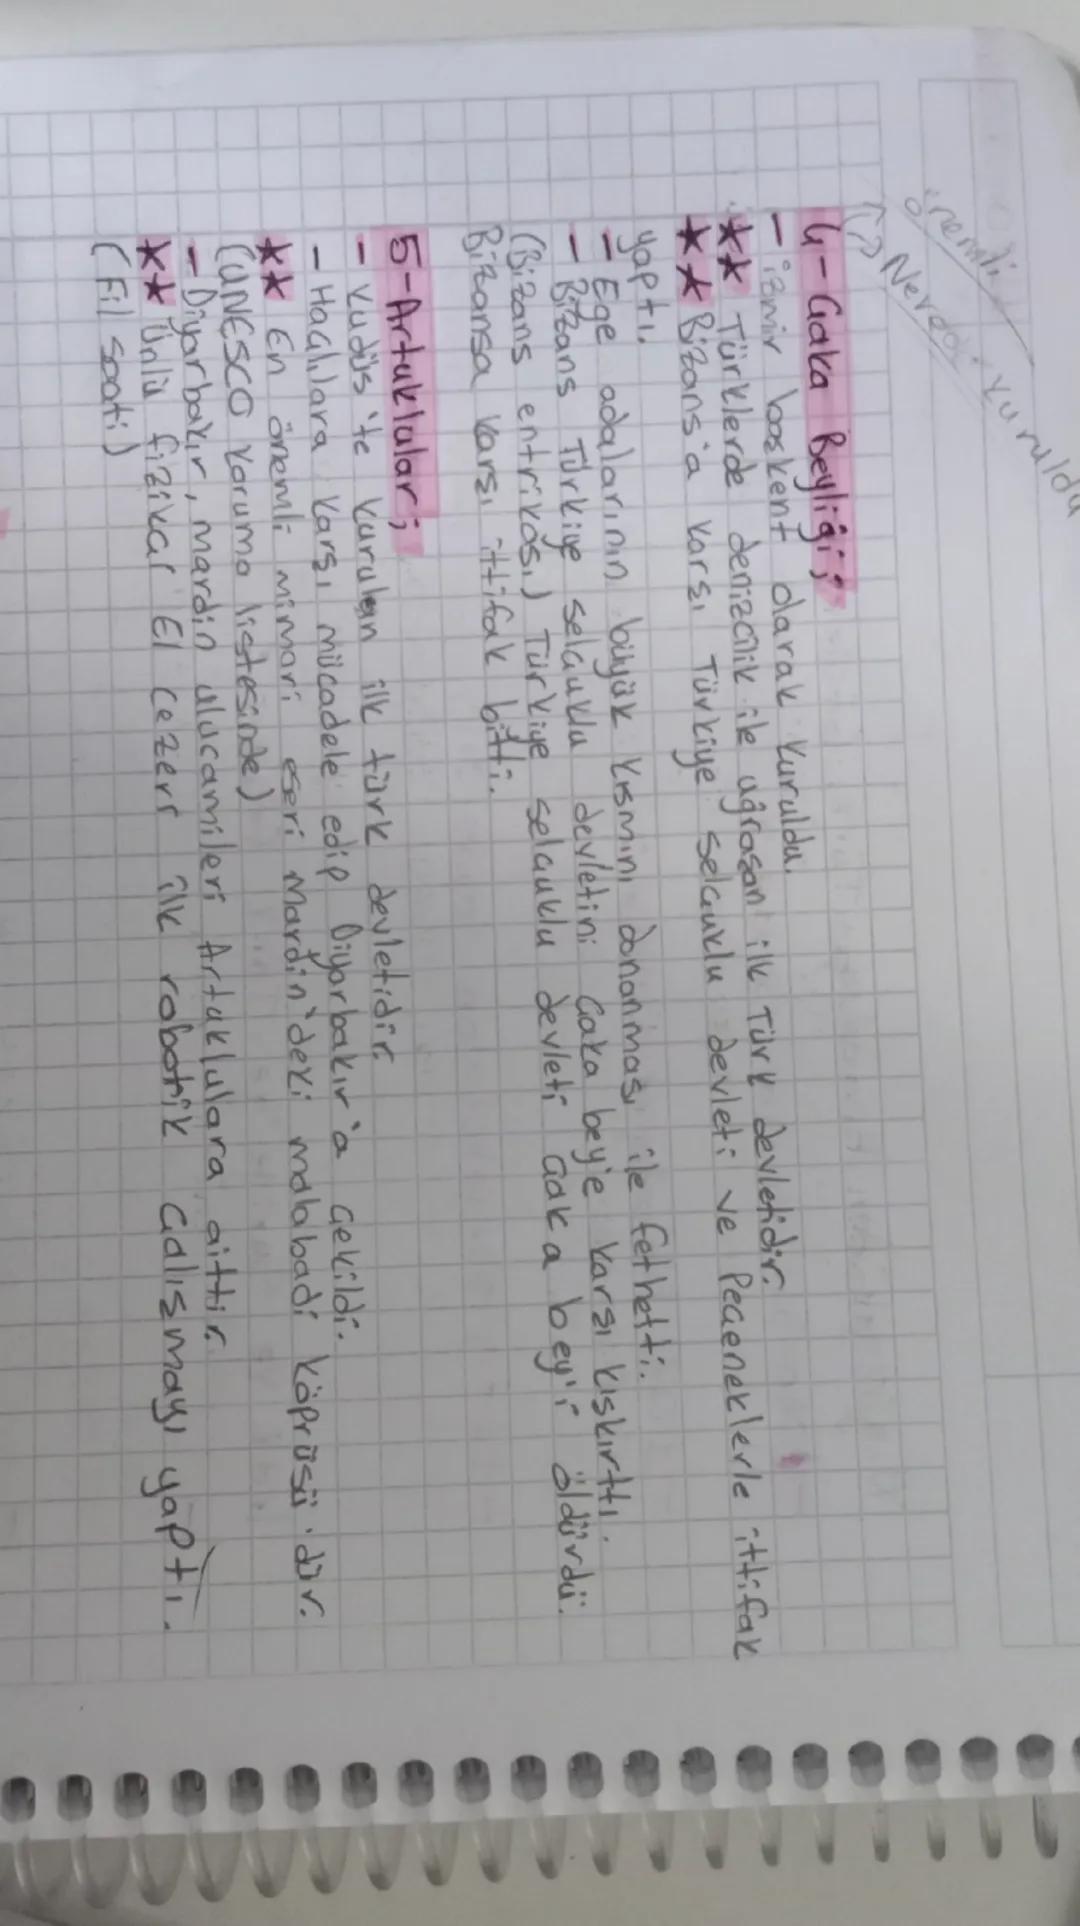 önemli
Nerde kuruldu
4-Çaka Beyliği;
- izmir başkent olarak kuruldu.
** Türklerde denizcilik ile uğraşan ilk Türk devletidir.
** Bizans'a karşı Türkiye selçuklu devleti ve Peçeneklerle ittifak
yaptı.
- Ege adalarının büyük kısmını donanması ile fethetti.
- Bizans Türkiye selçuklu devletini Çaka bey'e karşı kışkırttı.
(Bizans entrikası) Türkiye selçuklu devleti çaka bey'i öldürdü.
Bizansa karşı ittifak bitti.
5-Artuklular;
- Kudüs'te kurulan ilk türk devletidir.
- Haçlılara karşı mücadele edip Diyarbakır'a çekildi.
** En önemli mimari eseri Mardin'deki malabadi köprüsü'dür.
(UNESCO koruma listesinde)
- Diyarbakır, mardin ulucamileri Artuklulara aittir.
** Ünlü fizikçi El Cezeri ilk robotik çalışmayı yaptı.
(Fil saati)